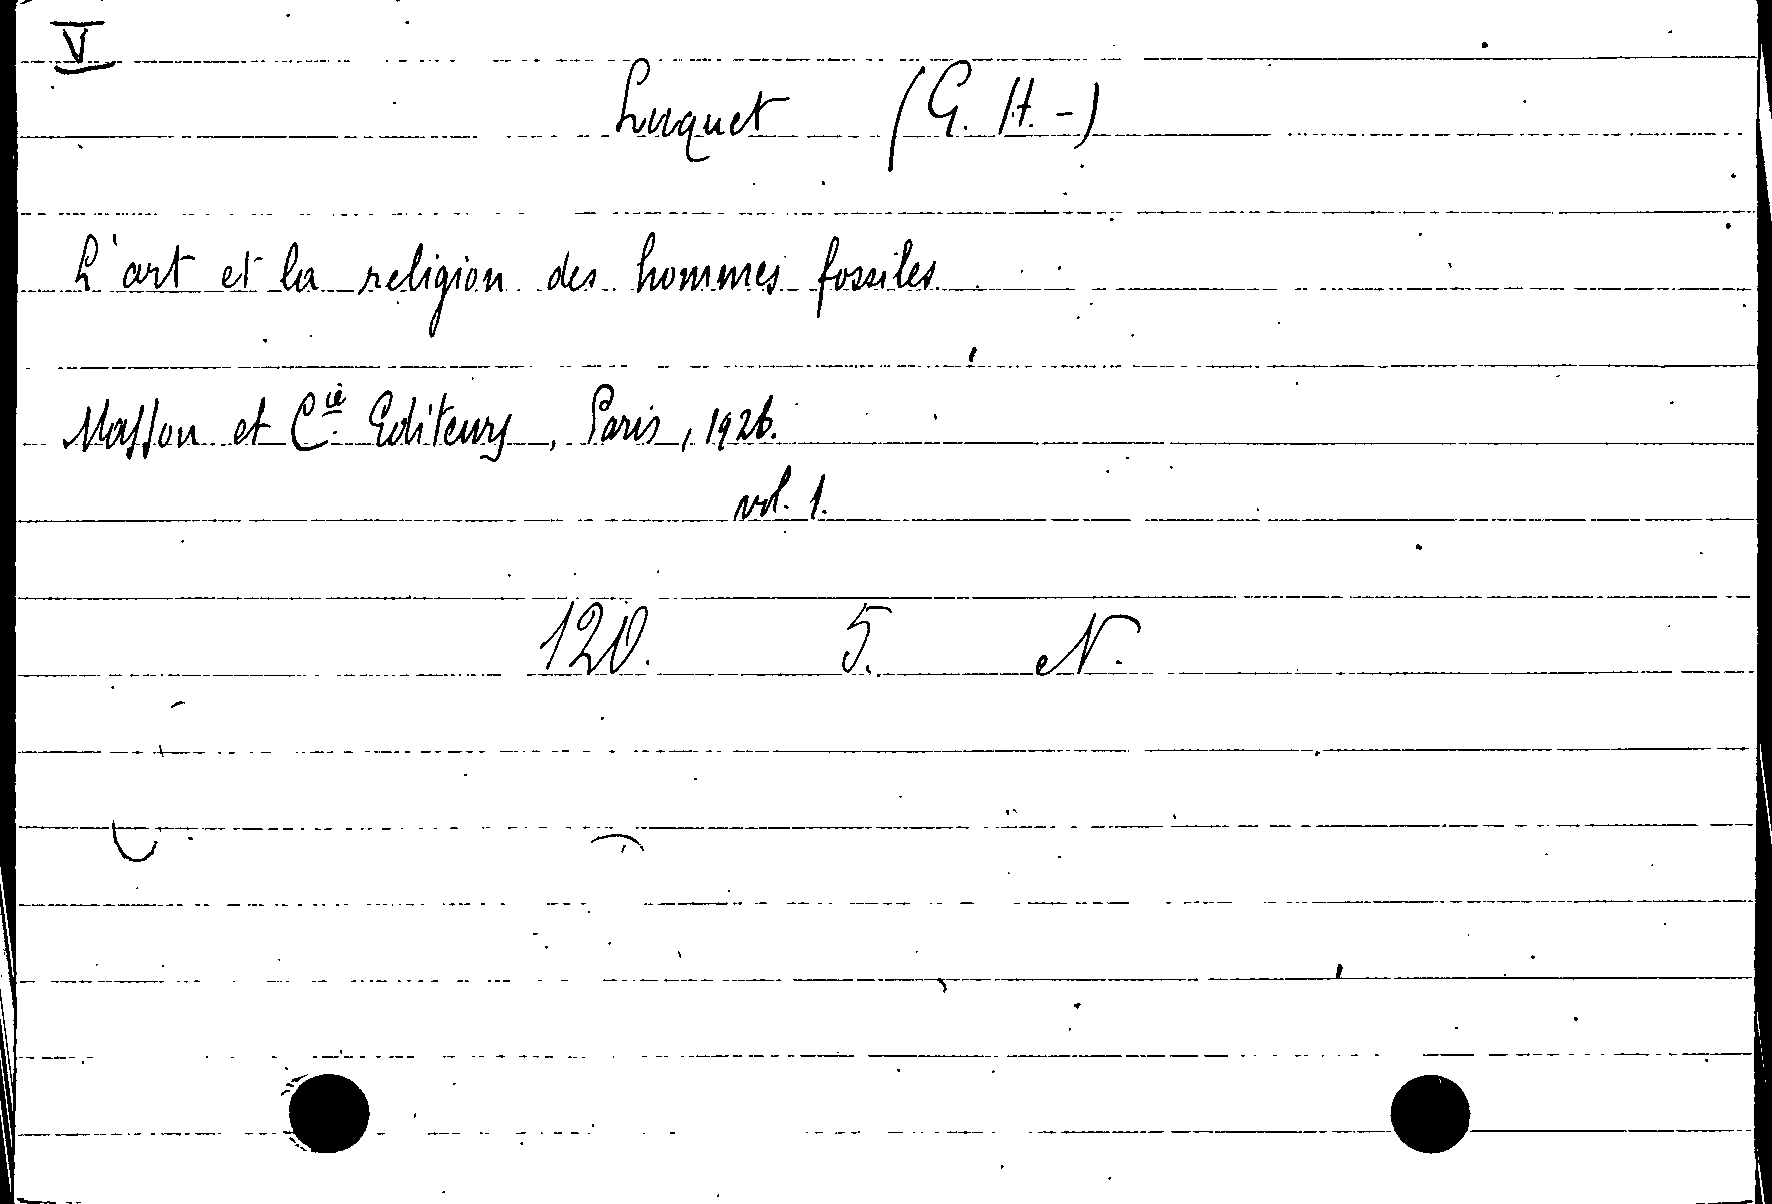 V
Luquet (G. H. -)
L'art et la religion des hommes fossiles
Masson et Cie Editeurs, Paris, 1926.
vol. 1.
120. 5. N.